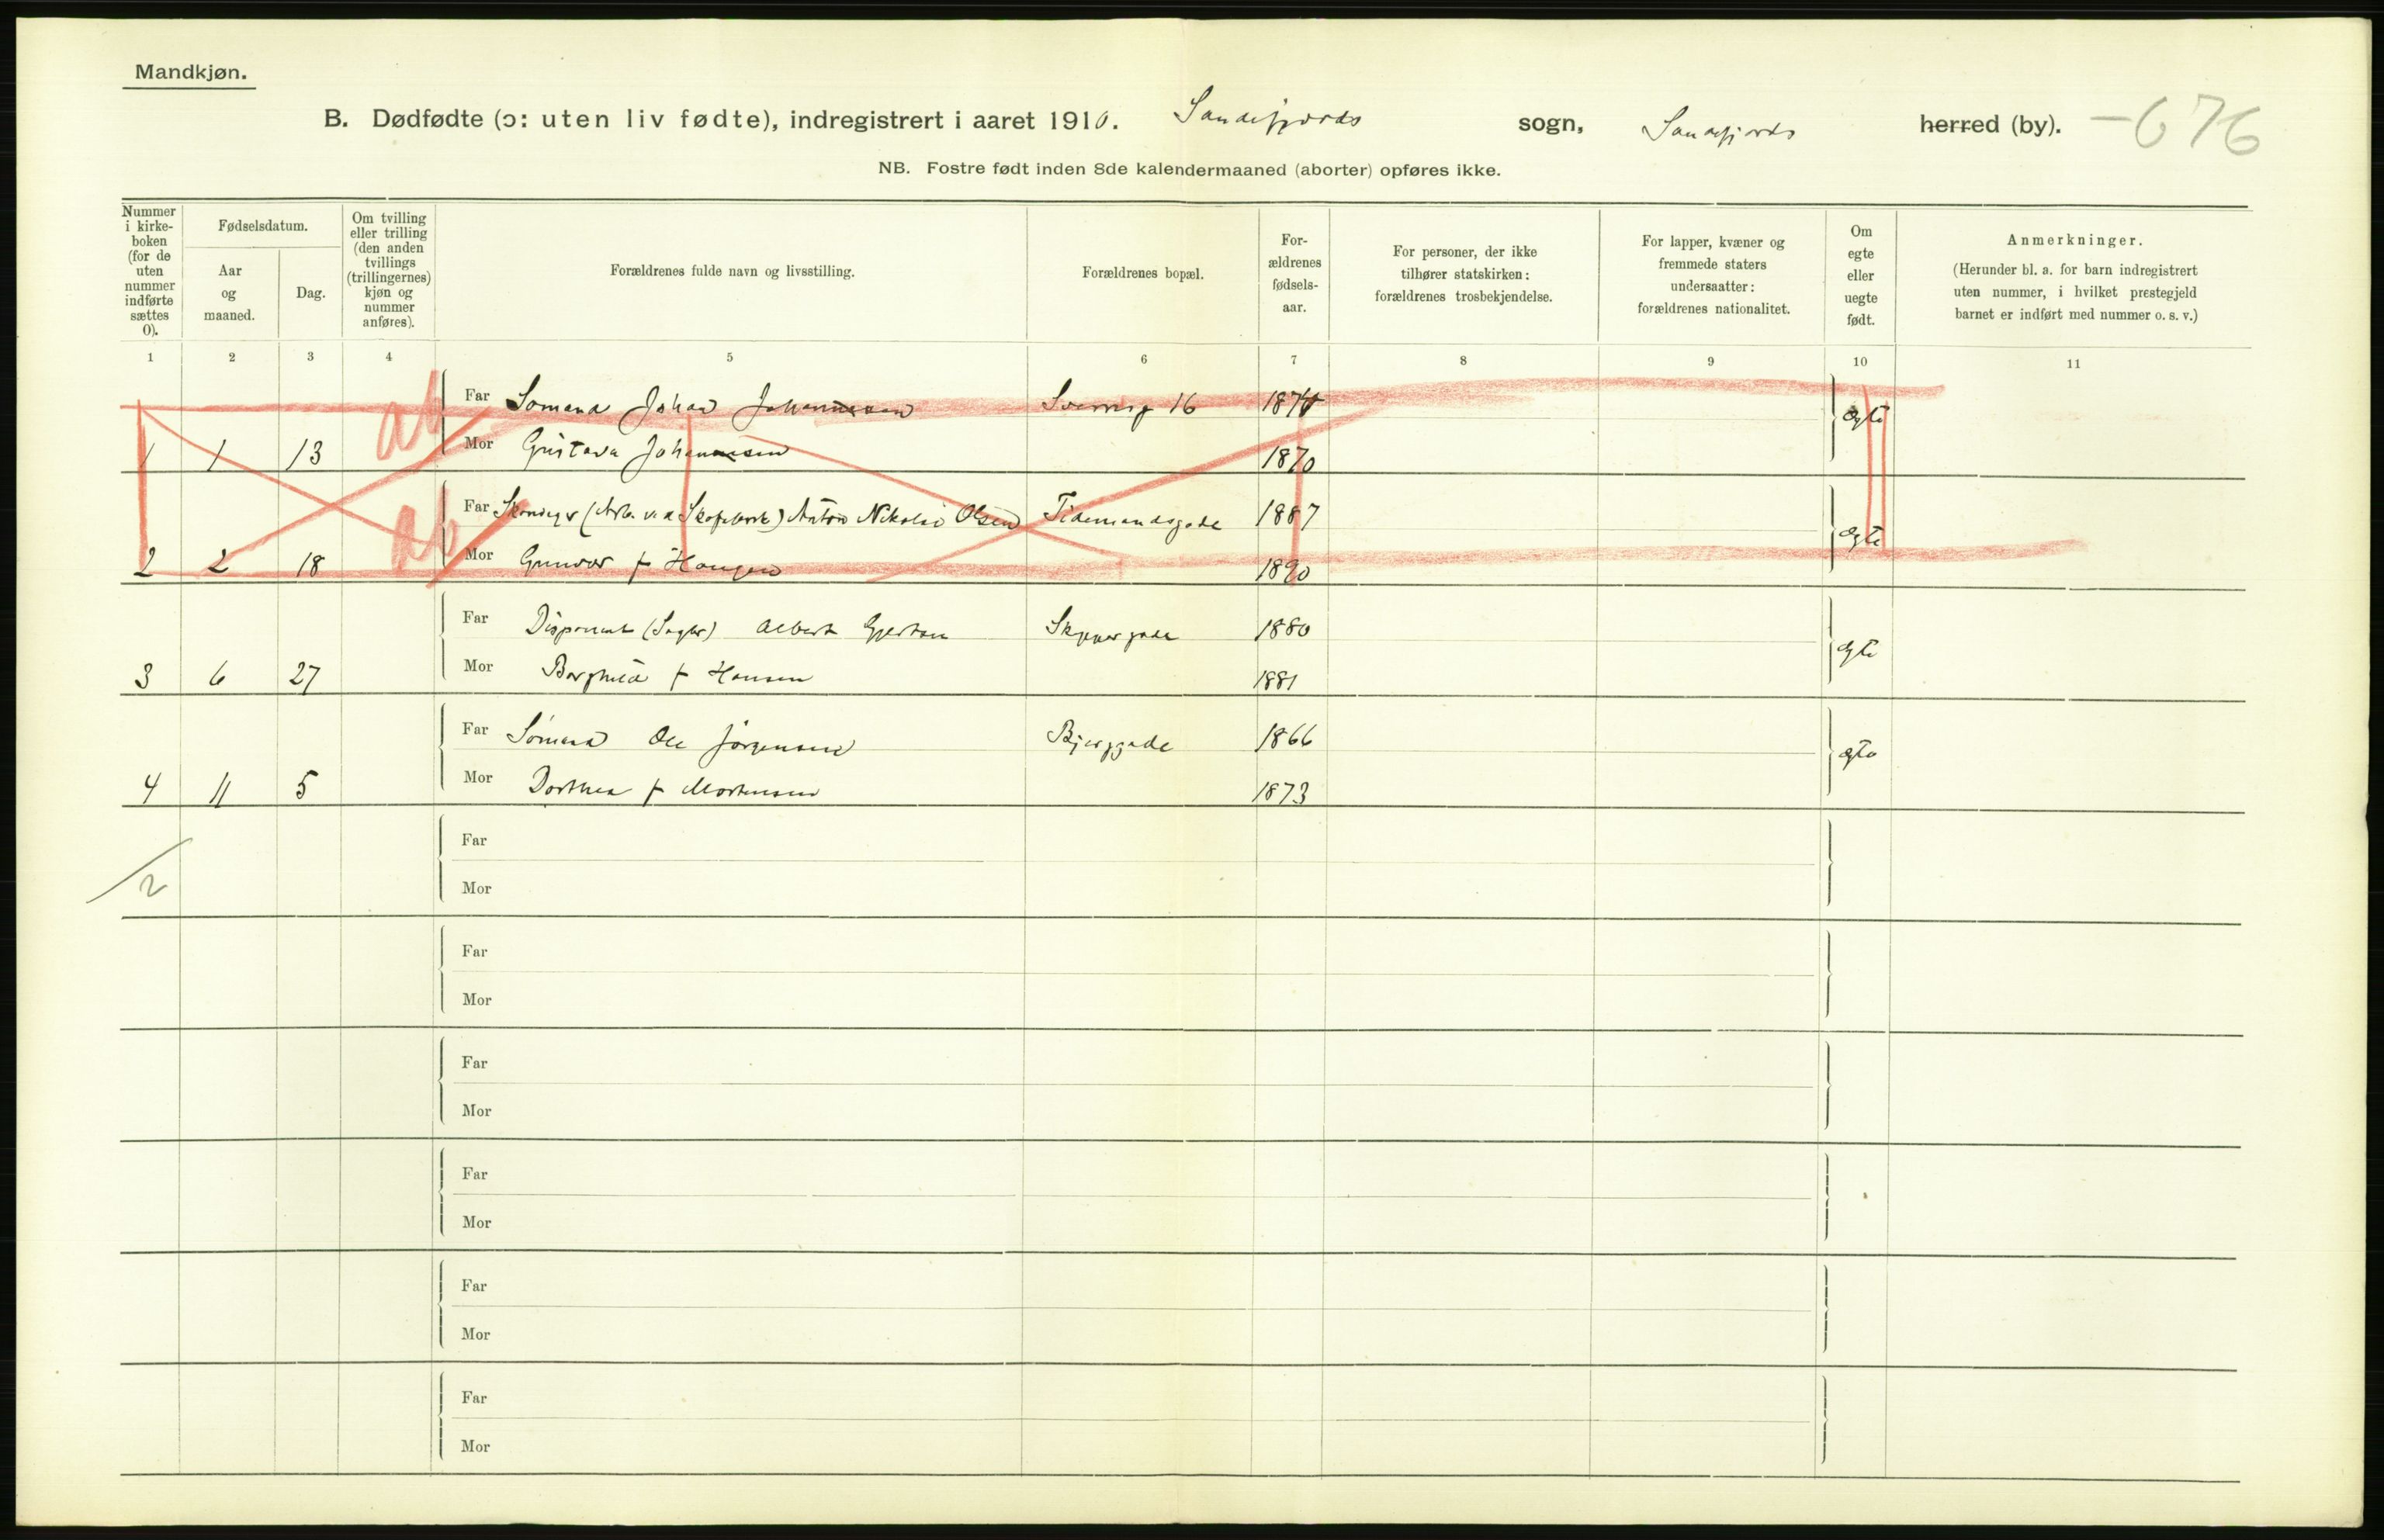 Mandkjøn.
B. Dødfødte (ɔ: uten liv fødte), indregistrert i aaret 1910. Sandefjords sogn, Sandefjords herred (by). -676
NB. Fostre født inden 8de kalendermaaned (aborter) opføres ikke.
Nummer i kirke-boken (for de uten nummer indførte sættes 0).
Fødselsdatum.
Aar og maaned.
Dag.
Om tvilling eller trilling (den anden tvillings (trillingernes) kjøn og nummer anføres).
Forældrenes fulde navn og livsstilling.
Forældrenes bopæl.
For-ældrenes fødsels-aar.
For personer, der ikke tilhører statskirken: forældrenes trosbekjendelse.
For lapper, kvæner og fremmede staters undersaatter: forældrenes nationalitet.
Om egte eller uegte født.
Anmerkninger.
(Herunder bl. a. for barn indregistrert uten nummer, i hvilket prestegjeld barnet er indført med nummer o. s. v.)
1 2 3 4 5 6 7 8 9 10 11
ab Far Sømand Johan Johannesen 16 1874 egte
1 1 13 Mor Gustava Johannesen 1870
ab Far Anton Nikolai Olsen Tidemandsgade 1887 egte
2 2 18 Mor Gunvor f Haugen 1890
Far Disponent Albert Gjertsen Skippergade 1880 egte
3 6 27 Mor Borghild f Hansen 1881
Far Sømand Ole Jørgensen Bjerggade 1866 egte
4 11 5 Mor Dorthea f Mortensen 1873
Far
2
Mor
Far
Mor
Far
Mor
Far
Mor
Far
Mor
Far
Mor